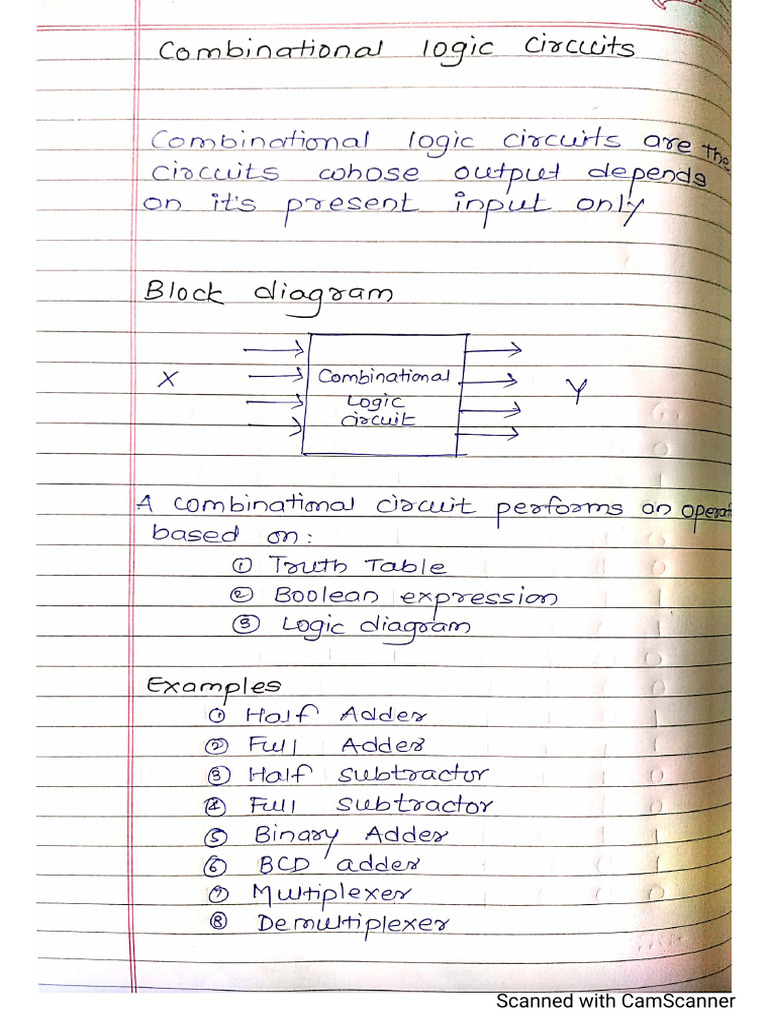 Combinational logic circuits
Combinational logic circuits are the
circuits whose output depends
on it's present input only
Block diagram
X
Combinational
Logic
circuit
Y
A combinational circuit performs an operati
based on:
① Truth Table
② Boolean expression
③ Logic diagram
Examples
① Half Adder
② Full Adder
③ Half subtractor
④ Full subtractor
⑤ Binary Adder
⑥ BCD adder
⑦ Multiplexer
⑧ Demultiplexer
Scanned with CamScanner